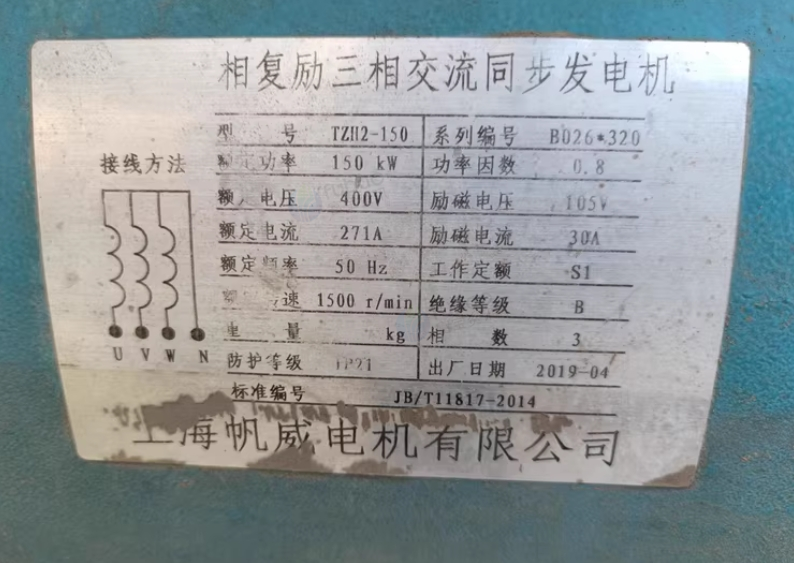 相复励三相交流同步发电机
型 号 TZH2-150 系列编号 B026*320
接线方法
额定功率 150 kW 功率因数 0.8
额定电压 400V 励磁电压 105V
额定电流 271A 励磁电流 30A
额定频率 50 Hz 工作定额 S1
速 1500 r/min 绝缘等级 B
量 kg 相 数 3
U V W N
防护等级 IP21 出厂日期 2019-04
标准编号 JB/T11817-2014
上海帆威电机有限公司